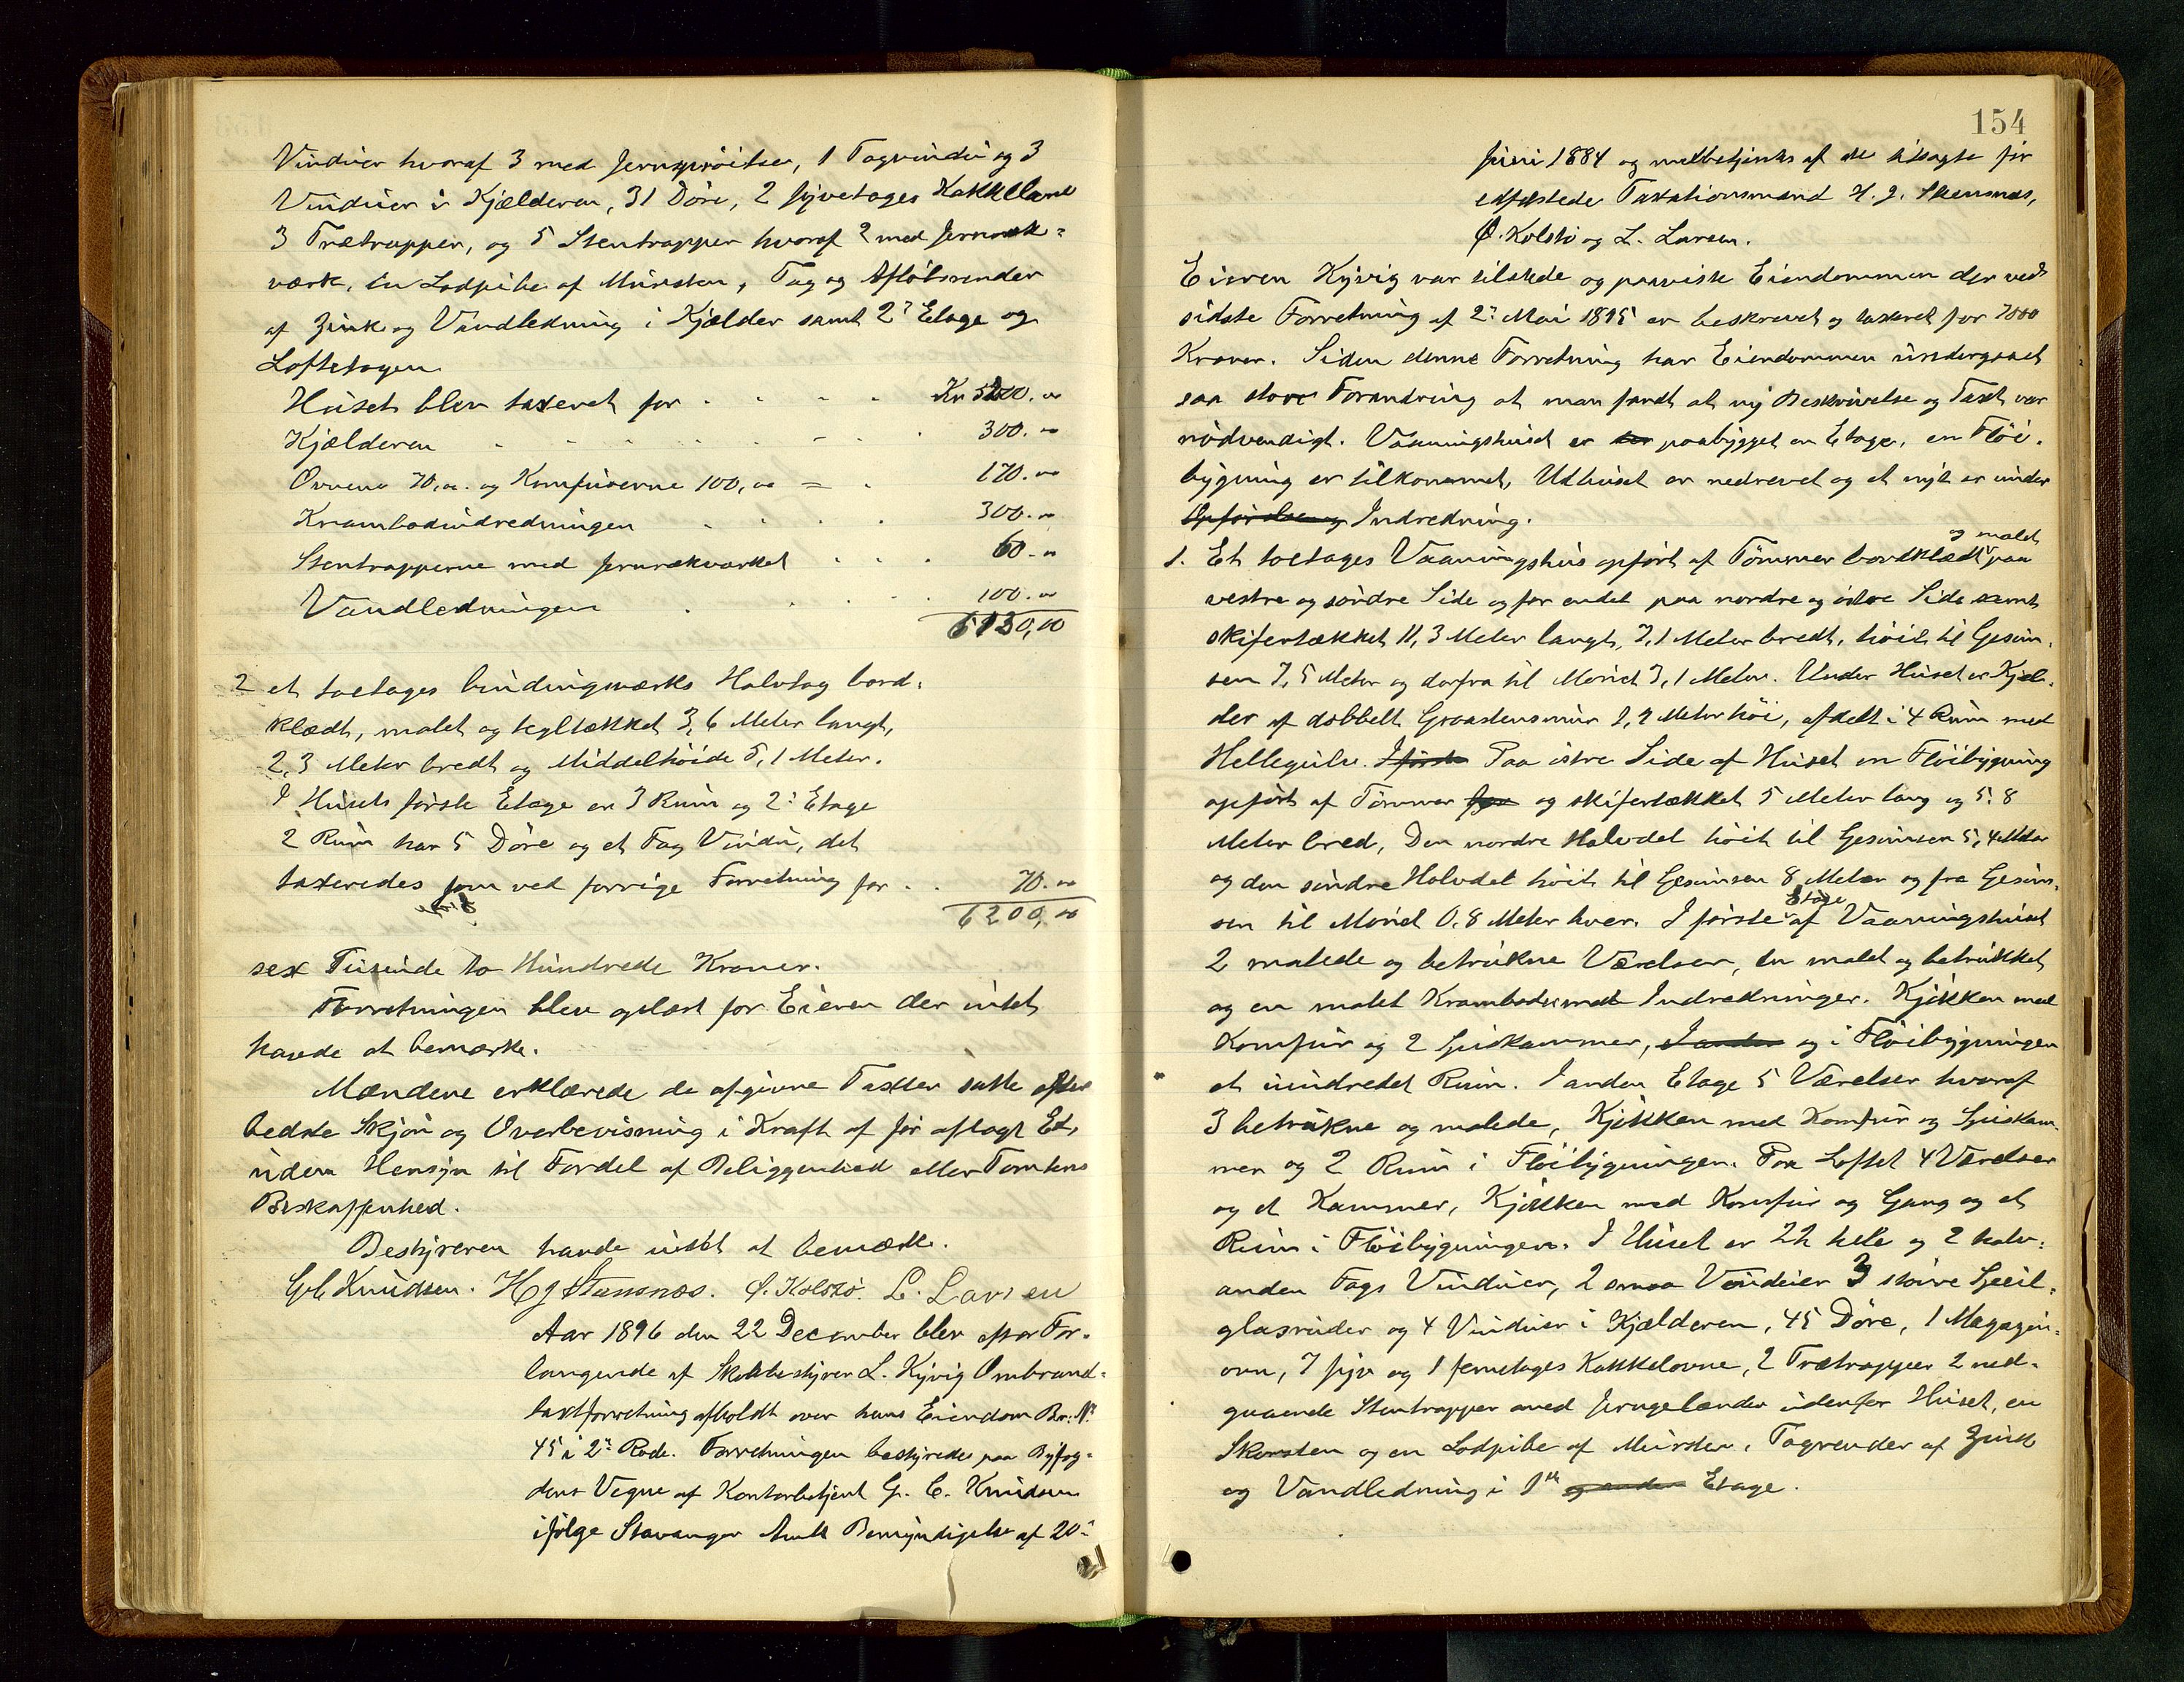 Vinduer hvoraf 3 med Jernsprøitser, 1 Tagvindu og 3
Vinduer i Kjælderen, 31 Döre, 2 fyvetages Kakkelovne
3 Trætrapper, og 5 Stentrapper hvoraf 2 med Jernræk=
værk, en Lodpibe af Mursten, Tag og Afløbsrender
af Zink og Vandledning i Kjælder samt 2den Etage og
Loftetagen.
Huset blev taxeret for . . . . Kr 5200.00
Kjælderen . . . . . . . 300.00
Ovnene 70,00. og Komfurerne 100,00 = . 170.00
Krambodindredningen . . . . 300.00
Stentrapperne med Jernrækværket . . . 60.00
Vandledningen . . . . 100.00
6130,00
2 et toetages bindingsværks Halvtag bord=
klædt, malet og tegltækket 3,6 Meter langt,
2,3 Meter bredt og Middelhöide 5,1 Meter.
I Husets første Etage er 3 Rum og 2: Etage
2 Rum har 5 Döre og et Fag Vindu, det
taxeredes som ved forrige Forretning for . . 70.00
6200,00
sex Tusinde to Hundrede Kroner.
Forretningen blev oplæst for Eieren der intet
havde at bemærke.
Mændene erklærede de afgivne Taxter satte efter
bedste Skjøn og Overbevisning i Kraft af før aflagt Ed,
uden Hensyn til Fordel af Beliggenhed eller Tomtens
Beskaffenhed.
Bestyreren havde intet at bemærke.
Knudsen. H J Stensnæs. Ø. Kolstø. L. Larsen
Aar 1896 den 22 December blev efter For=
langende af Skolebestyrer L. Kyvig Ombrand=
taxtforretning afholdt over hans Eiendom Br: No
45 i 2den Rode. Forretningen bestyredes paa Byfog=
dens Vegne af Kontorbetjent G. C. Knudsen
ifølge Stavanger Amts Bemyndigelse af 20de
154
Juni 1884 og medbetjentes af de tilsagte før
edfæstede Taxationsmænd H. J. Stensnæs,
Ø. Kolstø og L. Larsen.
Eieren Kyvig var tilstede og paaviste Eiendommen der ved
sidste Forretning af 2den Mai 1895 er beskrevet og taxeret for 7000
Kroner. Siden denne Forretning har Eiendommen undergaaet
saa store Forandring at man fandt at ny Beskrivelse og Taxt var
nödvendigt. Vaaningshuset er paabygget en Etage, en Flöi=
bygning er tilkommet, Udhuset er nedrevet og et nyt er under
Opførelse og Indredning.
1. Et toetages Vaaningshus opført af Tömmer bordklædt og malet paa
vestre og söndre Side og for endel paa nordre og östre Side samt
skifertækket 11,3 Meter langt, 7,1 Meter bredt, höit til Gesim=
sen 7,5 Meter og derfra til Mönet 3,1 Meter. Under Huset er Kjæl=
der af dobbelt Graastensmur 2,2 Meter höi, afdelt i 4 Rum med
Hellegulv. I første Paa östre Side af Huset en Flöibygning
opført af Tömmer og skifertækket 5 Meter lang og 5.8
Meter bred, Den nordre Halvdel höit til Gesimsen 5,4 Meter
og den söndre Halvdel höit til Gesimsen 8 Meter og fra Gesim=
sen til Mönet 0,8 Meter hver. I første Etage af Vaaningshuset
2 malede og betrukne Værelser, en malet og betrukket
og en malet Krambod med Indredninger. Kjökken med
Komfur og 2 Spiskammer, I anden og i Flöibygningen
et uindredet Rum. I anden Etage 5 Værelser hvoraf
3 betrukne og malede, Kjökken med Komfur og Spiskam=
mer og 2 Rum i Flöibygningen. Paa Loftet 4 Værelser
og et Kammer, Kjökken med Komfur og Gang og et
Rum i Flöibygningen. I Huset er 22 hele og 2 halv=
anden Fags Vinduer, 2 smaa Vinduer 3 större Speil=
glasruder og 4 Vinduer i Kjælderen, 45 Döre, 1 Magazin=
ovn, 7 fyr og 1 femetages Kakkelovne, 2 Trætrapper 2 ned=
gaaende Stentrapper med Jerngelænder udenfor Huset, en
Skorsten og en Lodpibe af Mursten, Tagrender af Zink
og Vandledning i 1ste og anden Etage.